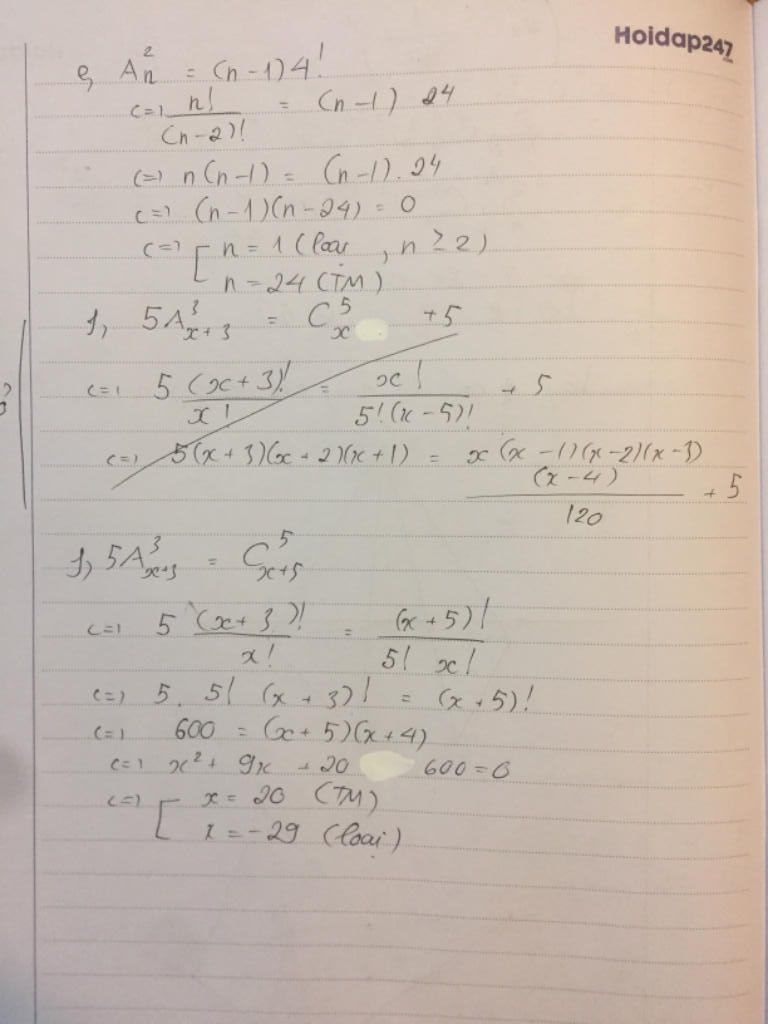 Hoidap247
e, A²ₙ = (n-1)4!
<=> n!/(n-2)! = (n-1) 24
<=> n(n-1) = (n-1).24
<=> (n-1)(n-24) = 0
<=> [ n = 1 (loại, n ≥ 2)
n = 24 (TM)
f, 5A³ₓ₊₃ = C⁵ₓ +5
<=> 5 (x+3)!/x! = x!/(5!(x-5)!) + 5
<=> 5(x+3)(x+2)(x+1) = x(x-1)(x-2)(x-3)(x-4)/120 + 5
f, 5A³ₓ₊₃ = C⁵ₓ₊₅
<=> 5 (x+3)!/x! = (x+5)!/(5! x!)
<=> 5. 5! (x+3)! = (x+5)!
<=> 600 = (x+5)(x+4)
<=> x² + 9x + 20 600 = 0
<=> [ x = 20 (TM)
x = -29 (loại)